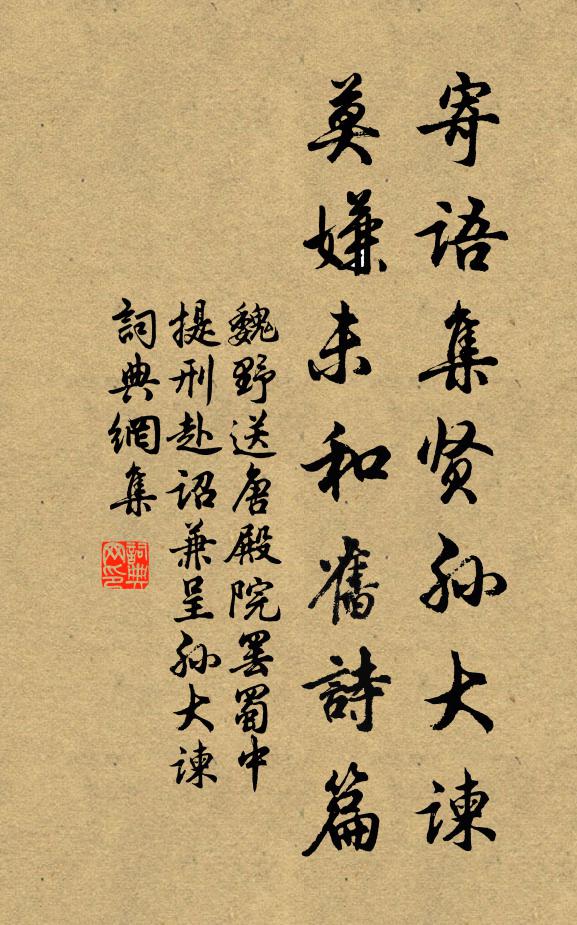 寄语集贤孙大谏
莫嫌未和舊詩篇
魏野送唐殿院罢蜀中
提刑赴诏兼呈孙大谏
詞典網集
詞典网印